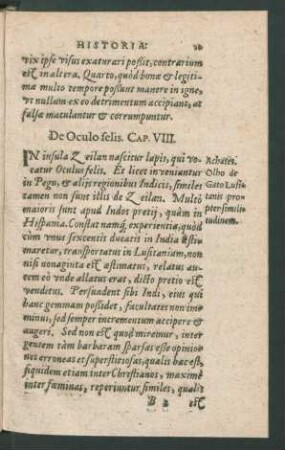 HISTORIA:
vix ipse visus exaturari possit, contrarium
est in altera. Quarto, quòd bonæ & legiti-
mæ multo tempore possunt manere in igne,
vt nullum ex eo detrimentum accipiant, at
falsæ maculantur & corrumpuntur.
De Oculo felis. CAP. VIII.
IN insula Zeilan nascitur lapis, qui vo-
catur Oculus felis. Et licet inveniantur
in Pegu, & alijs regionibus Indicis, similes
tamen non sunt illis de Zeilan. Multò
maioris sunt apud Indot pretij, quàm in
Hispania. Constat namq́; experientia, quòd
cùm vnus sexcentis ducatis in India æsti-
maretur, transportatus in Lusitaniam, non
nisi nonaginta est æstimatus, relatus au-
tem eò vnde allatus erat, dicto pretio est
vendetus. Persuadent sibi Indi, eius qui
hanc gemmam possidet, facultates non im-
minui, sed semper incrementum accipere &
augeri. Sed non est quod miremur, inter
gentem tàm barbaram sparsas esse opinio-
nes erroneas et superstitiosas, qualis hæc est,
siquidem etiam inter Christianos, maximè
inter fœminas, reperiuntur similes, qualis
B 2 est
Achates.
Olho de
Gato Lusi-
tanis pro-
pter simili-
tudinem.